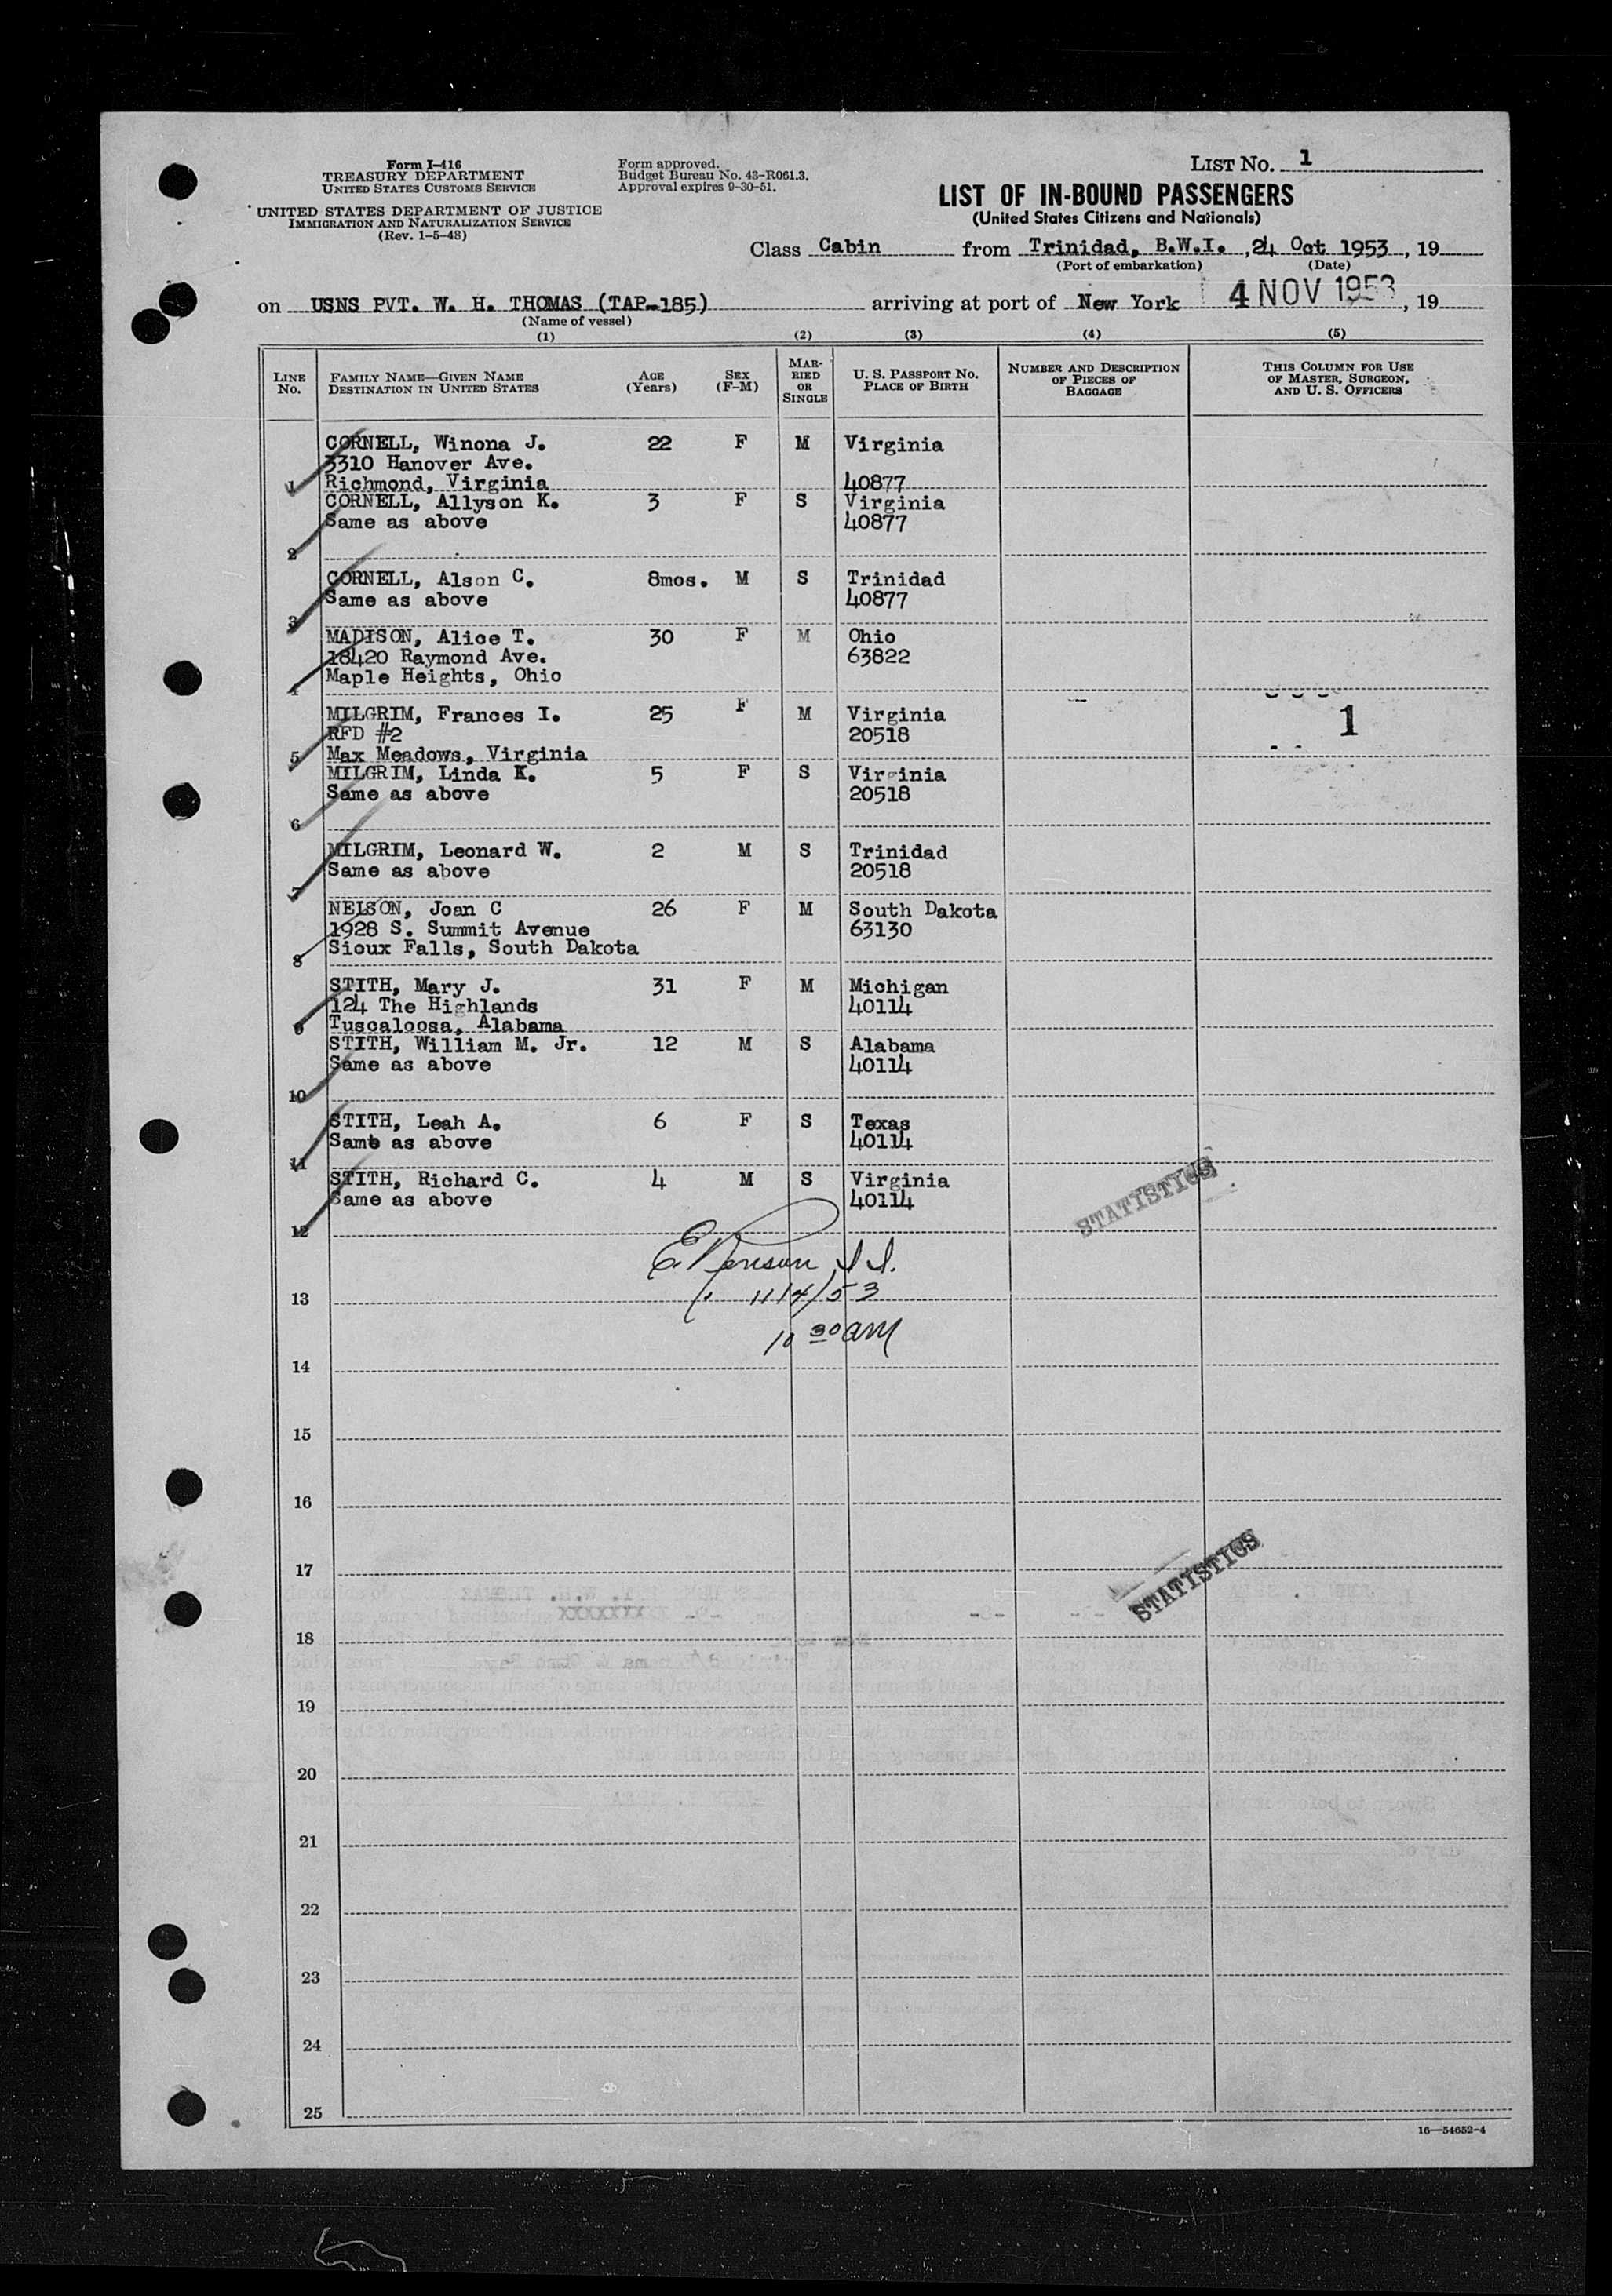 Form I-416
TREASURY DEPARTMENT
UNITED STATES CUSTOMS SERVICE
UNITED STATES DEPARTMENT OF JUSTICE
IMMIGRATION AND NATURALIZATION SERVICE
(Rev. 1-5-48)
Form approved.
Budget Bureau No. 43-R061.3.
Approval expires 9-30-51.
LIST NO. 1
LIST OF IN-BOUND PASSENGERS
(United States Citizens and Nationals)
Class Cabin from Trinidad, B.W.I. , 24 Oct 1953 , 19
(Port of embarkation) (Date)
on USNS PVT. W. H. THOMAS (TAP-185) arriving at port of New York 4 NOV 1953 , 19
(Name of vessel)
(1) (2) (3) (4) (5)
LINE NO. FAMILY NAME—GIVEN NAME DESTINATION IN UNITED STATES AGE (Years) SEX (F-M) MARRIED OR SINGLE U. S. PASSPORT NO. PLACE OF BIRTH NUMBER AND DESCRIPTION OF PIECES OF BAGGAGE THIS COLUMN FOR USE OF MASTER, SURGEON, AND U. S. OFFICERS
CORNELL, Winona J. 22 F M Virginia
3310 Hanover Ave.
1 Richmond, Virginia 40877
CORNELL, Allyson K. 3 F S Virginia
Same as above 40877
2
CORNELL, Alson C. 8mos. M S Trinidad
Same as above 40877
3
MADISON, Alice T. 30 F M Ohio
18420 Raymond Ave. 63822
Maple Heights, Ohio
4
MILGRIM, Frances I. 25 F M Virginia 1
RFD #2 20518
5 Max Meadows, Virginia
MILGRIM, Linda K. 5 F S Virginia
Same as above 20518
6
MILGRIM, Leonard W. 2 M S Trinidad
Same as above 20518
7
NELSON, Joan C 26 F M South Dakota
1928 S. Summit Avenue 63130
Sioux Falls, South Dakota
8
STITH, Mary J. 31 F M Michigan
124 The Highlands 40114
9 Tuscaloosa, Alabama
STITH, William M. Jr. 12 M S Alabama
Same as above 40114
10
STITH, Leah A. 6 F S Texas
Same as above 40114
11
STITH, Richard C. 4 M S Virginia
Same as above 40114
STATISTICS
12
11/4/53
13
10 30 AM
14
15
16
17
STATISTICS
18
19
20
21
22
23
24
25
16—54652-4